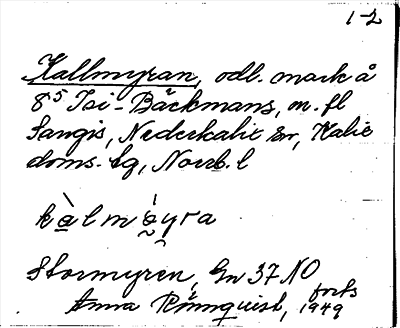 1-2
Kallmyran, odl. mark å
8⁵ Isi-Bäckmans, m. fl
Sangis, Nederkalix sn, Kalix
doms. lg, Norrb. l
Stormyren, Gn 37 NO
Anna Rönnquist, forts
1949